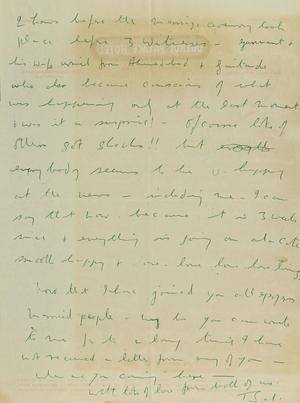 2 hours before the marriage ceremony took
place before 3 witnesses -
his wife arrived from Ahmedabad +
who also became conscious of what
was happening only at the last moment
+ was it a surprise! - of course lots of
others got shocks!! but
everybody seems to be v. happy
at the news - including me - I can
say that now because it is 3 weeks
since + everything is going on
smooth happy + love love love
now that I have joined you all
married people - may be you can write
to me for a long time I have
not received a letter from any of you -
when are you coming here -
with lots of love from both of us.